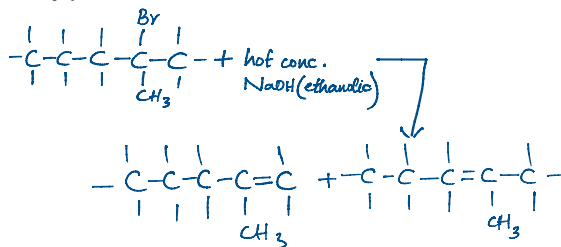 Br
-C-C-C-C-C- + hot conc.
CH3
NaOH(ethanolic)
-C-C-C-C=C + -C-C-C=C-C-
CH3
CH3